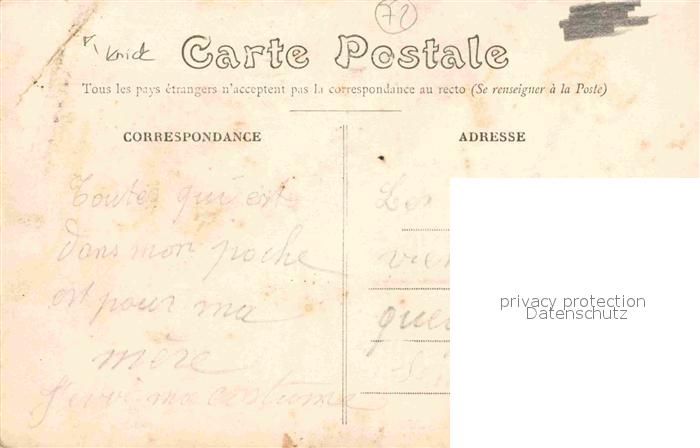 72
knick
Carte Postale
Tous les pays étrangers n'acceptent pas la correspondance au recto (Se renseigner à la Poste)
CORRESPONDANCE
ADRESSE
Toute qui est
dans mon poche
est pour ma
mère
ma costume
Les
privacy protection
Datenschutz